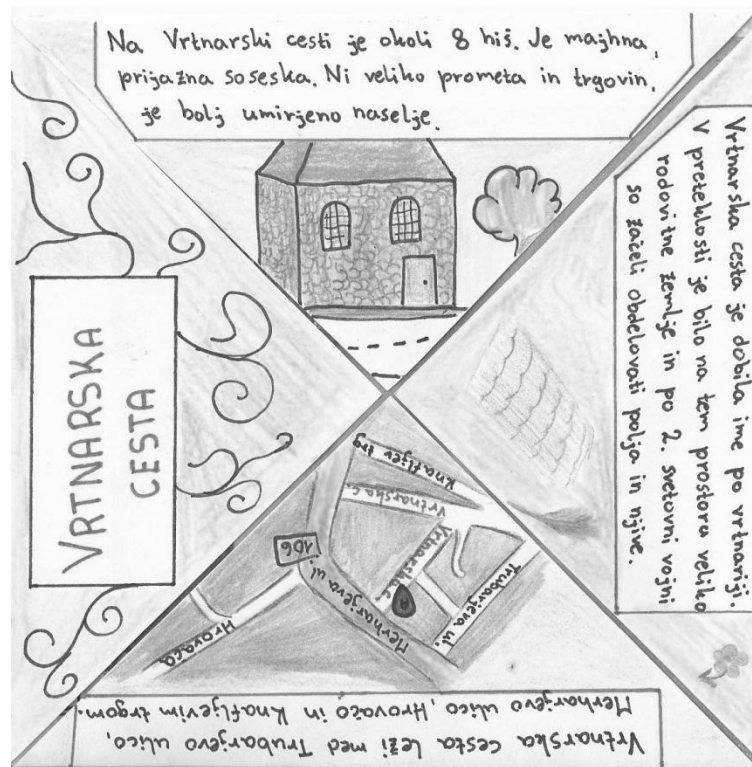 Na Vrtnarski cesti je okoli 8 hiš. Je majhna,
prijazna soseska. Ni veliko prometa in trgovin,
je bolj umirjeno naselje.
VRTNARSKA
CESTA
Vrtnarska cesta je dobila ime po vrtnariji.
V preteklosti je bilo na tem prostoru veliko
rodovitne zemlje in po 2. svetovni vojni
so začeli obdelovati polja in njive.
Knafljev trg
Vrtnarska c.
Vrtnarska c.
Trubarjeva ul.
106
Merharjeva ul.
Hrovača
Vrtnarska cesta leži med Trubarjevo ulico,
Merharjevo ulico, Hrovačo in Knafljevim trgom.